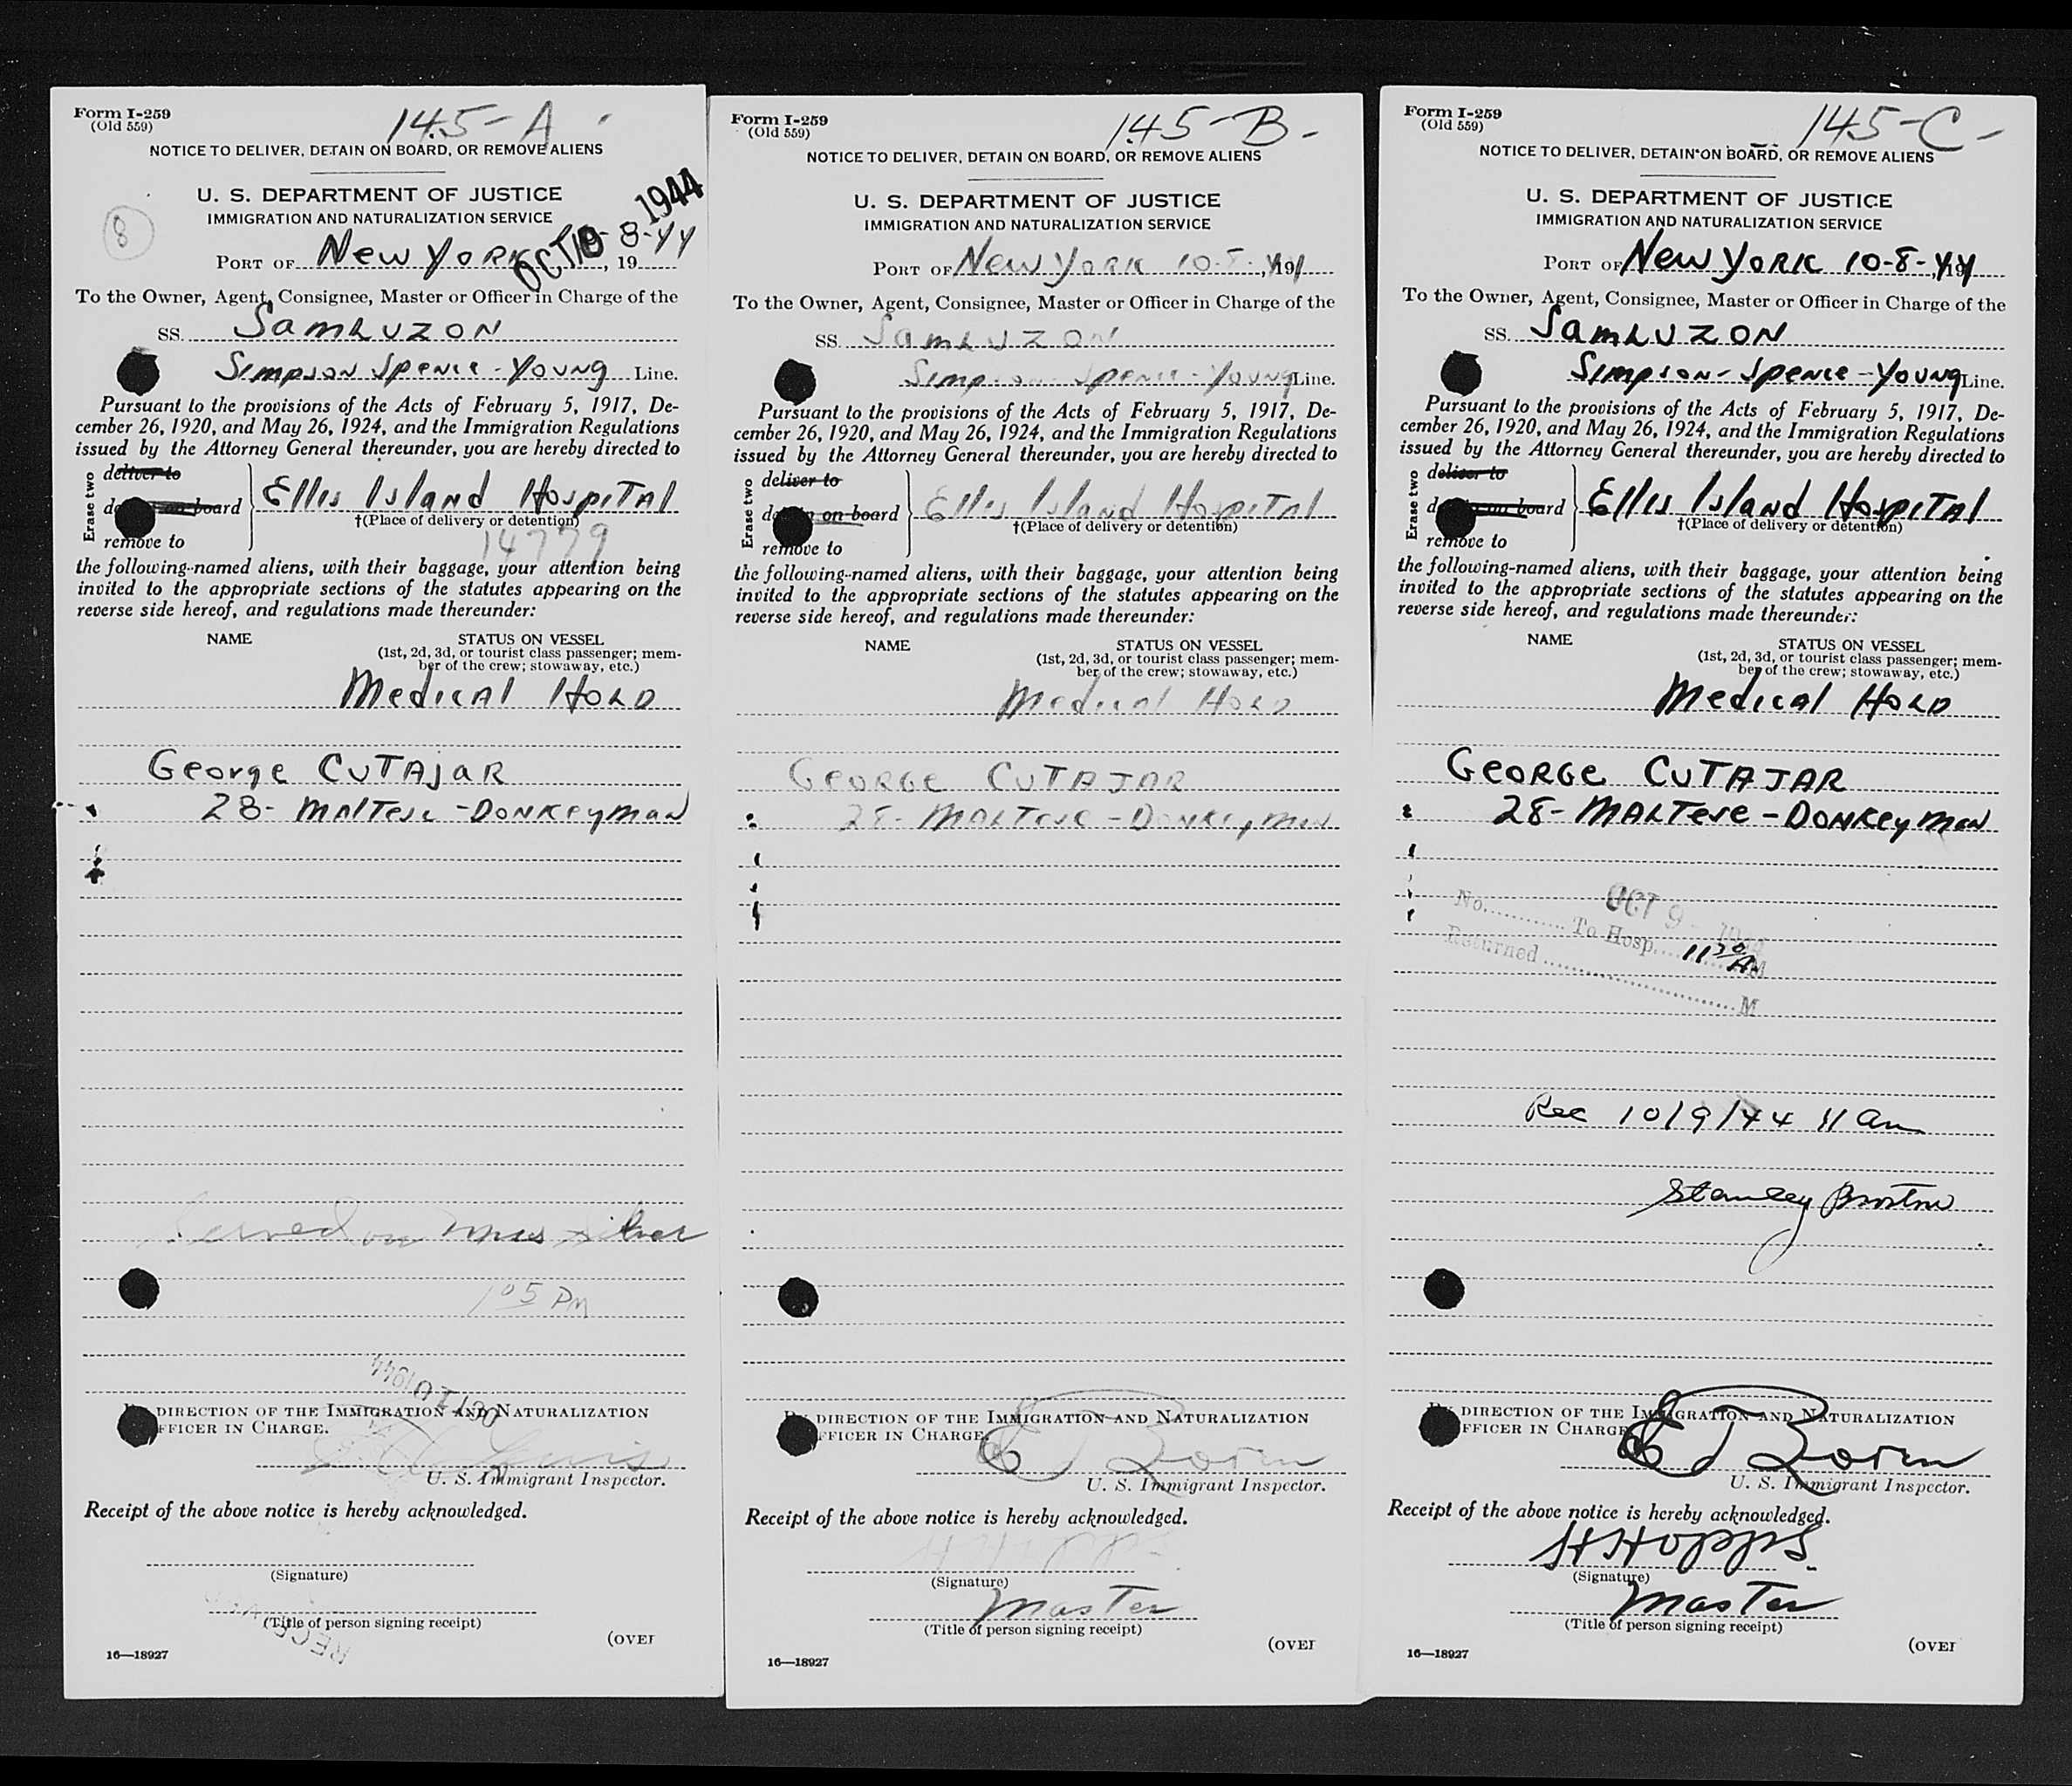 Form I-259
(Old 559)
145-A
NOTICE TO DELIVER, DETAIN ON BOARD, OR REMOVE ALIENS
U. S. DEPARTMENT OF JUSTICE
IMMIGRATION AND NATURALIZATION SERVICE
8
1944
PORT OF New York 8-44, 19
OCT 10
To the Owner, Agent, Consignee, Master or Officer in Charge of the
SS. SamLuzon
Simpson Spence-Young Line.
Pursuant to the provisions of the Acts of February 5, 1917, De-
cember 26, 1920, and May 26, 1924, and the Immigration Regulations
issued by the Attorney General thereunder, you are hereby directed to
Erase two
deliver to
on board
remove to
Ellis Island Hospital
†(Place of delivery or detention)
14779
the following-named aliens, with their baggage, your attention being
invited to the appropriate sections of the statutes appearing on the
reverse side hereof, and regulations made thereunder:
NAME
STATUS ON VESSEL
(1st, 2d, 3d, or tourist class passenger; mem-
ber of the crew; stowaway, etc.)
Medical Hold
George Cutajar
28- Maltese -Donkeyman
Served on
1 05 PM
OCT 10 1944
DIRECTION OF THE IMMIGRATION AND NATURALIZATION
FFICER IN CHARGE.
U. S. Immigrant Inspector.
Receipt of the above notice is hereby acknowledged.
(Signature)
(Title of person signing receipt)
(OVER
16—18927
Form I-259
(Old 559)
145-B-
NOTICE TO DELIVER, DETAIN ON BOARD, OR REMOVE ALIENS
U. S. DEPARTMENT OF JUSTICE
IMMIGRATION AND NATURALIZATION SERVICE
PORT OF New York 10-8-44
To the Owner, Agent, Consignee, Master or Officer in Charge of the
SS. SamLuzon
Simpson-Spence-Young Line.
Pursuant to the provisions of the Acts of February 5, 1917, De-
cember 26, 1920, and May 26, 1924, and the Immigration Regulations
issued by the Attorney General thereunder, you are hereby directed to
Erase two
deliver to
on board
remove to
Ellis Island Hospital
†(Place of delivery or detention)
the following-named aliens, with their baggage, your attention being
invited to the appropriate sections of the statutes appearing on the
reverse side hereof, and regulations made thereunder:
NAME
STATUS ON VESSEL
(1st, 2d, 3d, or tourist class passenger; mem-
ber of the crew; stowaway, etc.)
Medical Hold
George Cutajar
28- Maltese -Donkeyman
DIRECTION OF THE IMMIGRATION AND NATURALIZATION
FFICER IN CHARGE.
U. S. Immigrant Inspector.
Receipt of the above notice is hereby acknowledged.
H Hopps
(Signature)
Master
(Title of person signing receipt)
(OVER
16—18927
Form I-259
(Old 559)
145-C-
NOTICE TO DELIVER, DETAIN ON BOARD, OR REMOVE ALIENS
U. S. DEPARTMENT OF JUSTICE
IMMIGRATION AND NATURALIZATION SERVICE
PORT OF New York 10-8-44
To the Owner, Agent, Consignee, Master or Officer in Charge of the
SS. SamLuzon
Simpson-Spence-Young Line.
Pursuant to the provisions of the Acts of February 5, 1917, De-
cember 26, 1920, and May 26, 1924, and the Immigration Regulations
issued by the Attorney General thereunder, you are hereby directed to
Erase two
deliver to
on board
remove to
Ellis Island Hospital
†(Place of delivery or detention)
the following-named aliens, with their baggage, your attention being
invited to the appropriate sections of the statutes appearing on the
reverse side hereof, and regulations made thereunder:
NAME
STATUS ON VESSEL
(1st, 2d, 3d, or tourist class passenger; mem-
ber of the crew; stowaway, etc.)
Medical Hold
George Cutajar
28- Maltese -Donkeyman
OCT 9 - 1944
No. To Hosp. 11 30 A M
Returned M
Rec 10/9/44 11 am
Stanley
DIRECTION OF THE IMMIGRATION AND NATURALIZATION
FFICER IN CHARGE
U. S. Immigrant Inspector.
Receipt of the above notice is hereby acknowledged.
H Hopps
(Signature)
Master
(Title of person signing receipt)
(OVER
16—18927